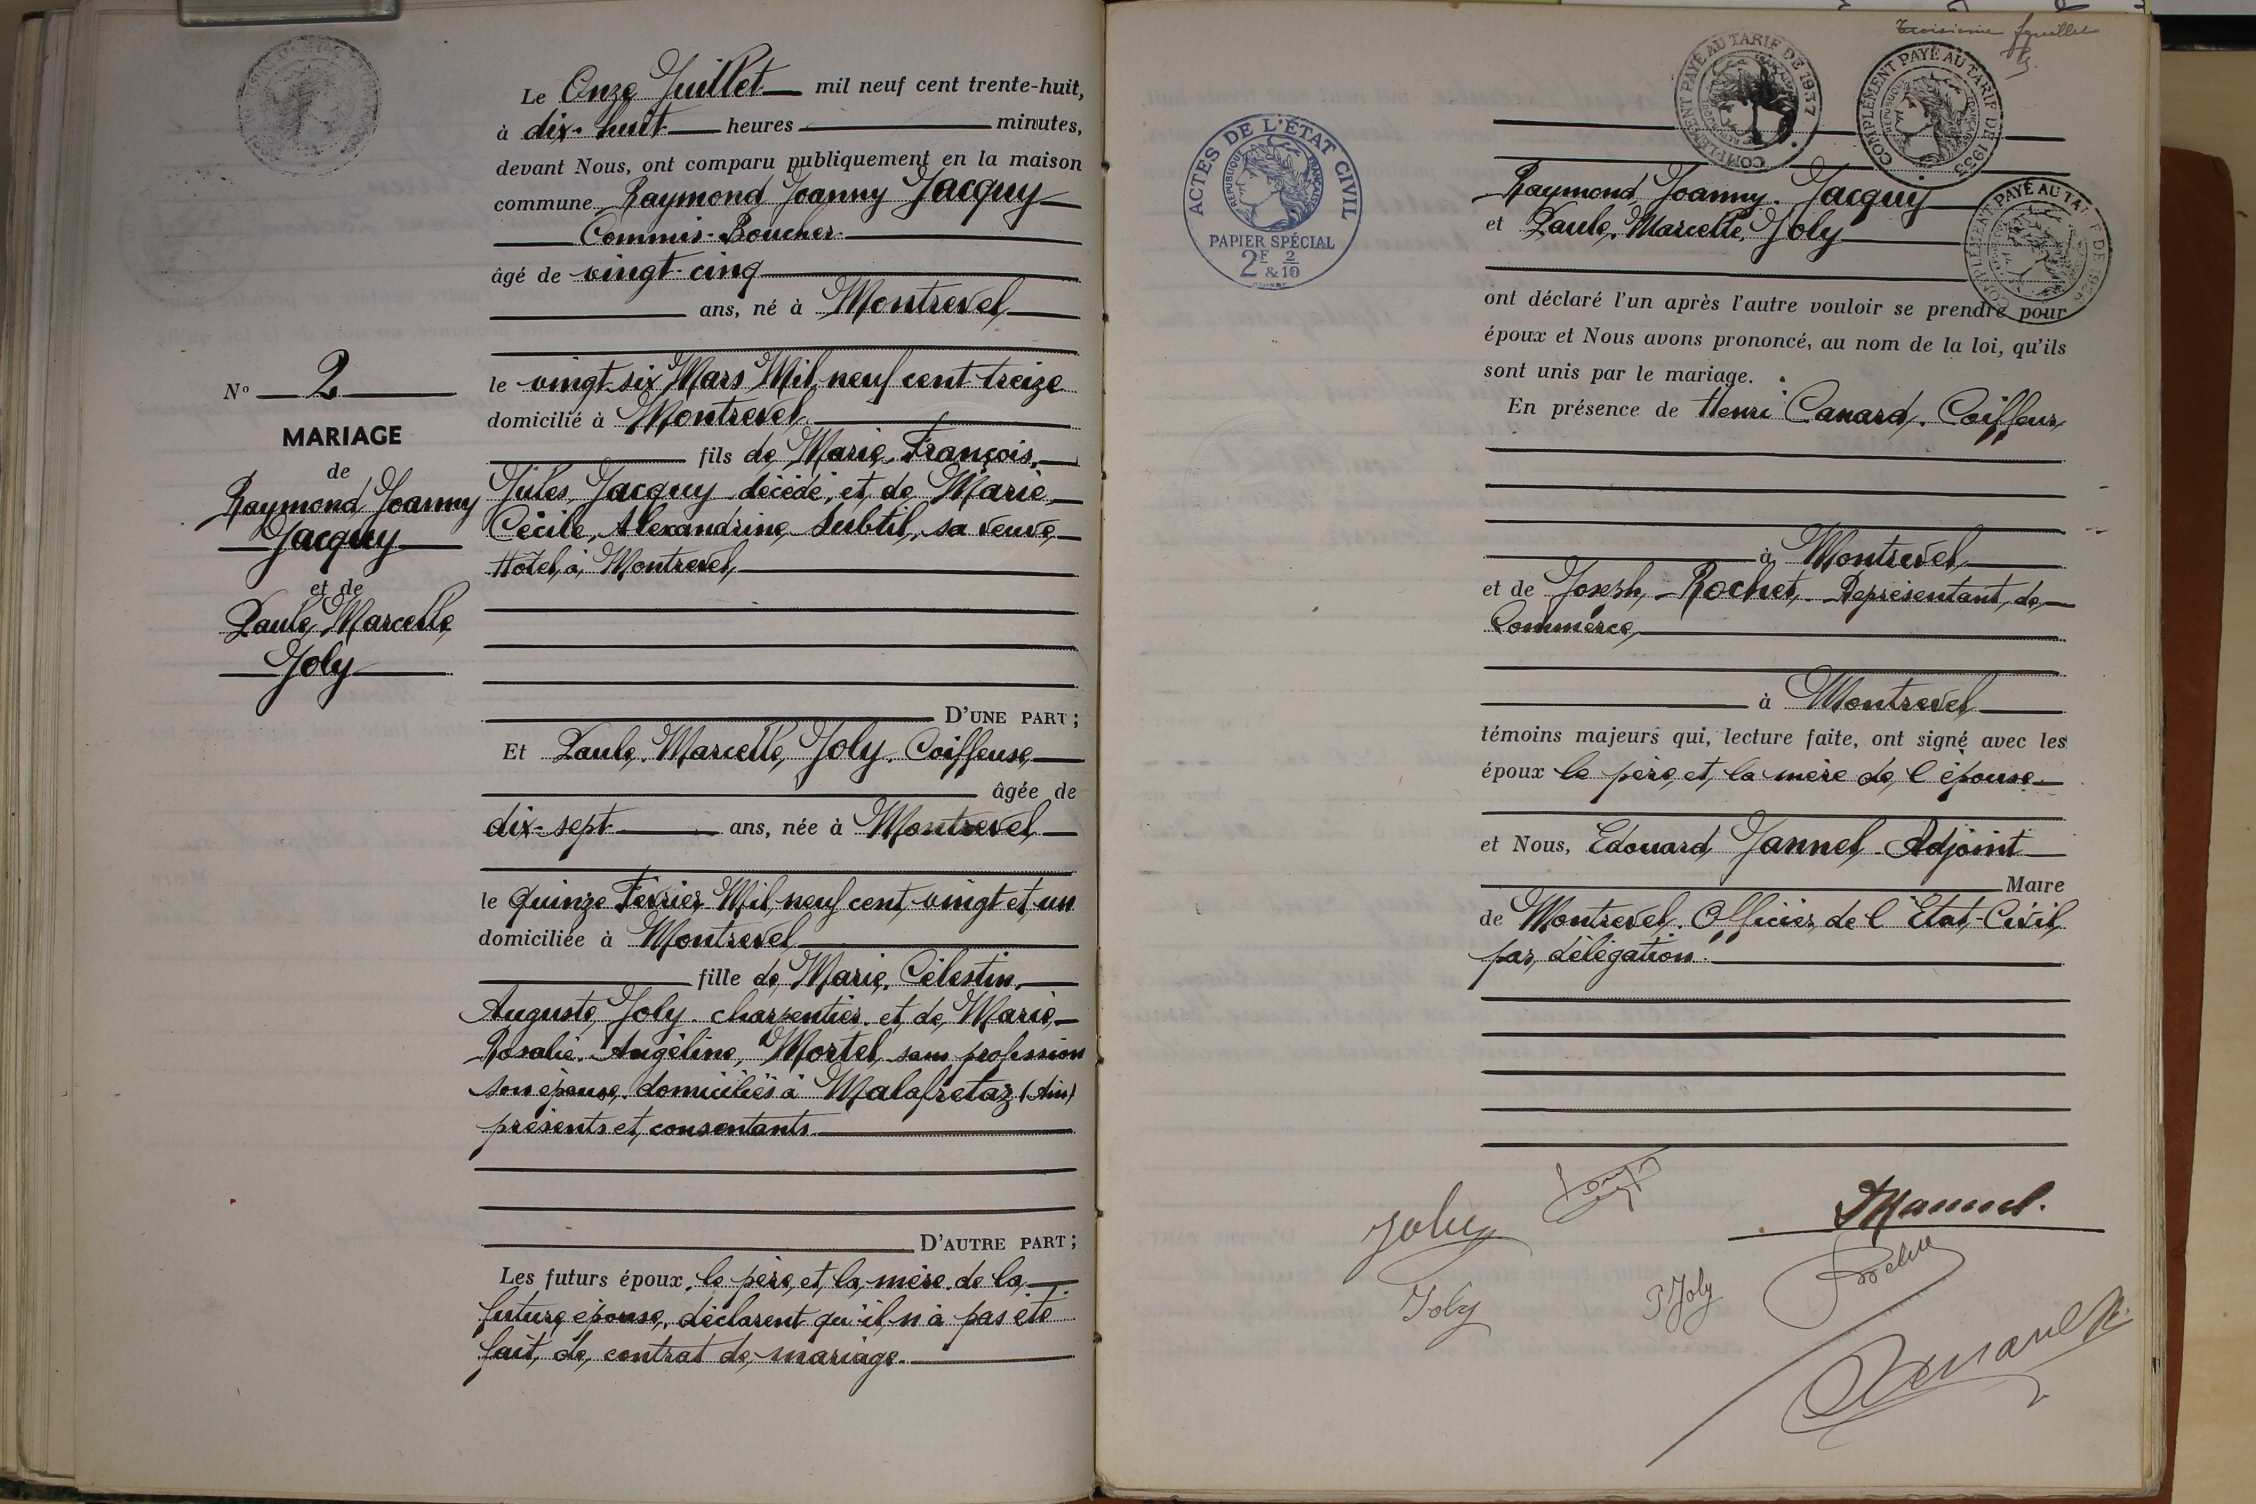 Le Onze Juillet mil neuf cent trente-huit,
à dix-huit heures minutes,
devant Nous, ont comparu publiquement en la maison
commune Raymond Joanny Jacquy
Commis-Boucher
âgé de vingt-cinq
ans, né à Montrevel
le vingt-six Mars Mil neuf cent treize
domicilié à Montrevel
fils de Marie, François,
Jules, Jacquy décédé, et de Marie
Cécile, Alexandrine Subtil, sa veuve,
Hôtel, à Montrevel,
D'UNE PART ;
Et Paule, Marcelle, Joly. Coiffeuse,
âgée de
dix-sept ans, née à Montrevel
le quinze Février Mil neuf cent vingt et un
domiciliée à Montrevel
fille de Marie, Célestin,
Auguste, Joly. charpentier. et de Marie
Rosalie. Angéline, Mortel, sans profession
son épouse, domiciliés à Malafretaz (Ain)
présents et consentants
D'AUTRE PART ;
Les futurs époux, le père, et la mère de la
future épouse, déclarent qu'il n'a pas été
fait de contrat de mariage.
N° 2
MARIAGE
de
Raymond Joanny
Jacquy
et de
Paule, Marcelle,
Joly
troisième feuillet
COMPLÉMENT PAYÉ AU TARIF DE 1937
COMPLÉMENT PAYÉ AU TARIF DE 1935
COMPLÉMENT PAYÉ AU TARIF DE 1926
ACTES DE L'ÉTAT CIVIL
RÉPUBLIQUE FRANÇAISE
PAPIER SPÉCIAL
2F & 2/10
Raymond Joanny. Jacquy
et Paule, Marcelle, Joly
ont déclaré l'un après l'autre vouloir se prendre pour
époux et Nous avons prononcé, au nom de la loi, qu'ils
sont unis par le mariage.
En présence de Henri Canard. Coiffeur
à Montrevel
et de Joseph, Rochet, Représentant de
Commerce,
à Montrevel
témoins majeurs qui, lecture faite, ont signé avec les
époux le père, et la mère de l'épouse
et Nous, Edouard Jannel, Adjoint
Maire
de Montrevel. Officier de l'Etat-Civil,
par délégation.
Joly
Joly
P Joly
Rochet